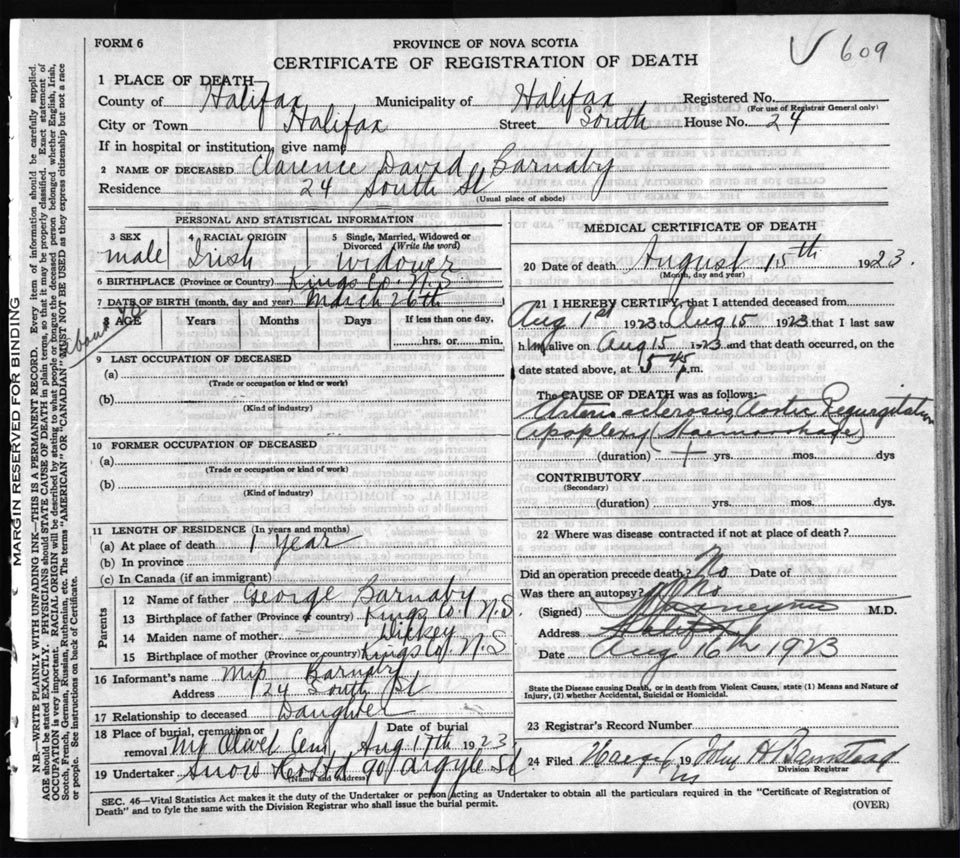 FORM 6
PROVINCE OF NOVA SCOTIA
CERTIFICATE OF REGISTRATION OF DEATH
√ 609
1 PLACE OF DEATH—
County of Halifax Municipality of Halifax Registered No.
(For use of Registrar General only)
City or Town Halifax Street South House No. 24
If in hospital or institution, give name
2 NAME OF DECEASED Clarence David Barnaby
Residence 24 South St
(Usual place of abode)
PERSONAL AND STATISTICAL INFORMATION
3 SEX male
4 RACIAL ORIGIN Irish
5 Single, Married, Widowed or Divorced (Write the word) Widower
6 BIRTHPLACE (Province or Country) Kings Co. N.S.
7 DATE OF BIRTH (month, day and year) March 26th
8 AGE Years Months Days If less than one day, hrs. or min.
about 70
9 LAST OCCUPATION OF DECEASED
(a)
(Trade or occupation or kind or work)
(b)
(Kind of industry)
10 FORMER OCCUPATION OF DECEASED
(a)
(Trade or occupation or kind of work)
(b)
(Kind of industry)
11 LENGTH OF RESIDENCE (In years and months)
(a) At place of death 1 year
(b) In province
(c) In Canada (if an immigrant)
Parents
12 Name of father George Barnaby
13 Birthplace of father (Province or country) Kings Co. N.S
14 Maiden name of mother Dickey
15 Birthplace of mother (Province or country) Kings Co. N.S
16 Informant's name Miss Barnaby
Address 124 South St
17 Relationship to deceased Daughter
18 Place of burial, cremation or removal Mt Olivet Cem Date of burial Aug 17th 1923
19 Undertaker Snow & Co Ltd 90 Argyle St
(Name and address)
MEDICAL CERTIFICATE OF DEATH
20 Date of death August 15th 1923.
(Month, day and year)
21 I HEREBY CERTIFY, that I attended deceased from
Aug 1st 1923 to Aug 15 1923 that I last saw
him alive on Aug 15 1923 and that death occurred, on the
date stated above, at 5 45 p.m.
The CAUSE OF DEATH was as follows:
Arteriosclerosis, Aortic Regurgitation
Apoplexy (Haemorrhage)
(duration) yrs. mos. dys
CONTRIBUTORY
(Secondary)
(duration) yrs. mos. dys.
22 Where was disease contracted if not at place of death?
Did an operation precede death? No Date of
Was there an autopsy? No
(Signed) M.D.
Address Halifax
Date Aug 16th 1923
State the Disease causing Death, or in death from Violent Causes, state (1) Means and Nature of Injury, (2) whether Accidental, Suicidal or Homicidal.
23 Registrar's Record Number
24 Filed 19 John A Barnstead
Division Registrar
SEC. 46—Vital Statistics Act makes it the duty of the Undertaker or person acting as Undertaker to obtain all the particulars required in the "Certificate of Registration of
Death" and to fyle the same with the Division Registrar who shall issue the burial permit.
(OVER)
MARGIN RESERVED FOR BINDING
N.B.—WRITE PLAINLY WITH UNFADING INK—THIS IS A PERMANENT RECORD. Every item of information should be carefully supplied.
AGE should be stated EXACTLY. PHYSICIANS should STATE CAUSE OF DEATH in plain terms, so that it may be properly classified. Exact statement of
OCCUPATION is very important. RACIAL ORIGIN will be described by stating to what people or tongue the deceased person belonged whether English, Irish,
Scotch, French, German, Russian, Ruthenian, etc. The terms "AMERICAN" OR "CANADIAN" MUST NOT BE USED as they express citizenship but not a race
or people. See instructions on back of Certificate.